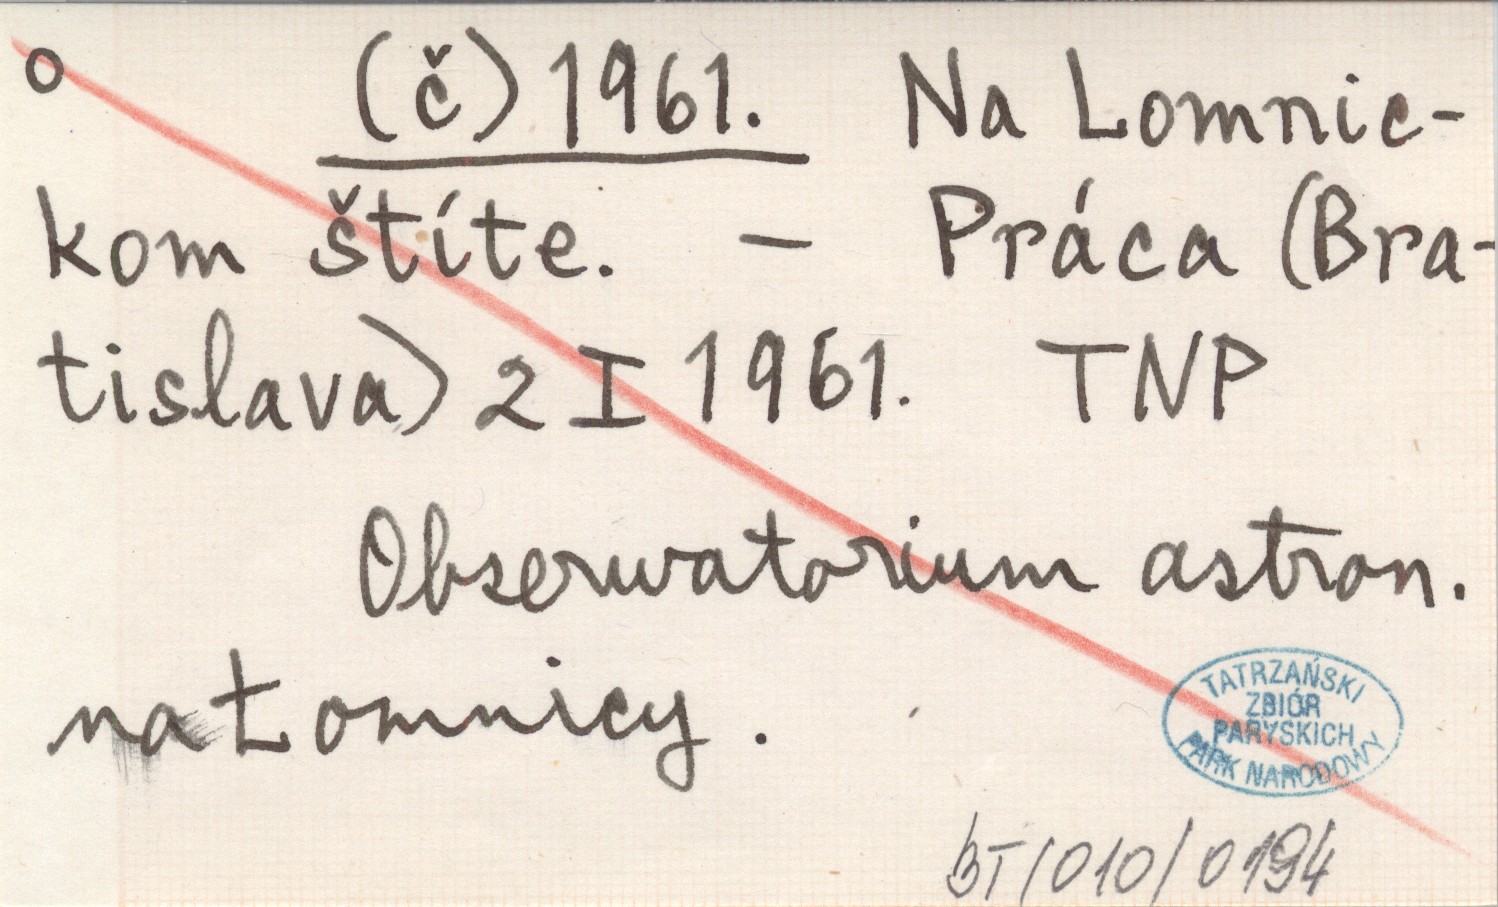 o (č) 1961. Na Lomnic-
kom štíte. – Práca (Bra-
tislava) 2 I 1961. TNP
Obserwatorium astron.
na Łomnicy.
TATRZAŃSKI
ZBIÓR
PARYSKICH
PARK NARODOWY
BT/010/0194